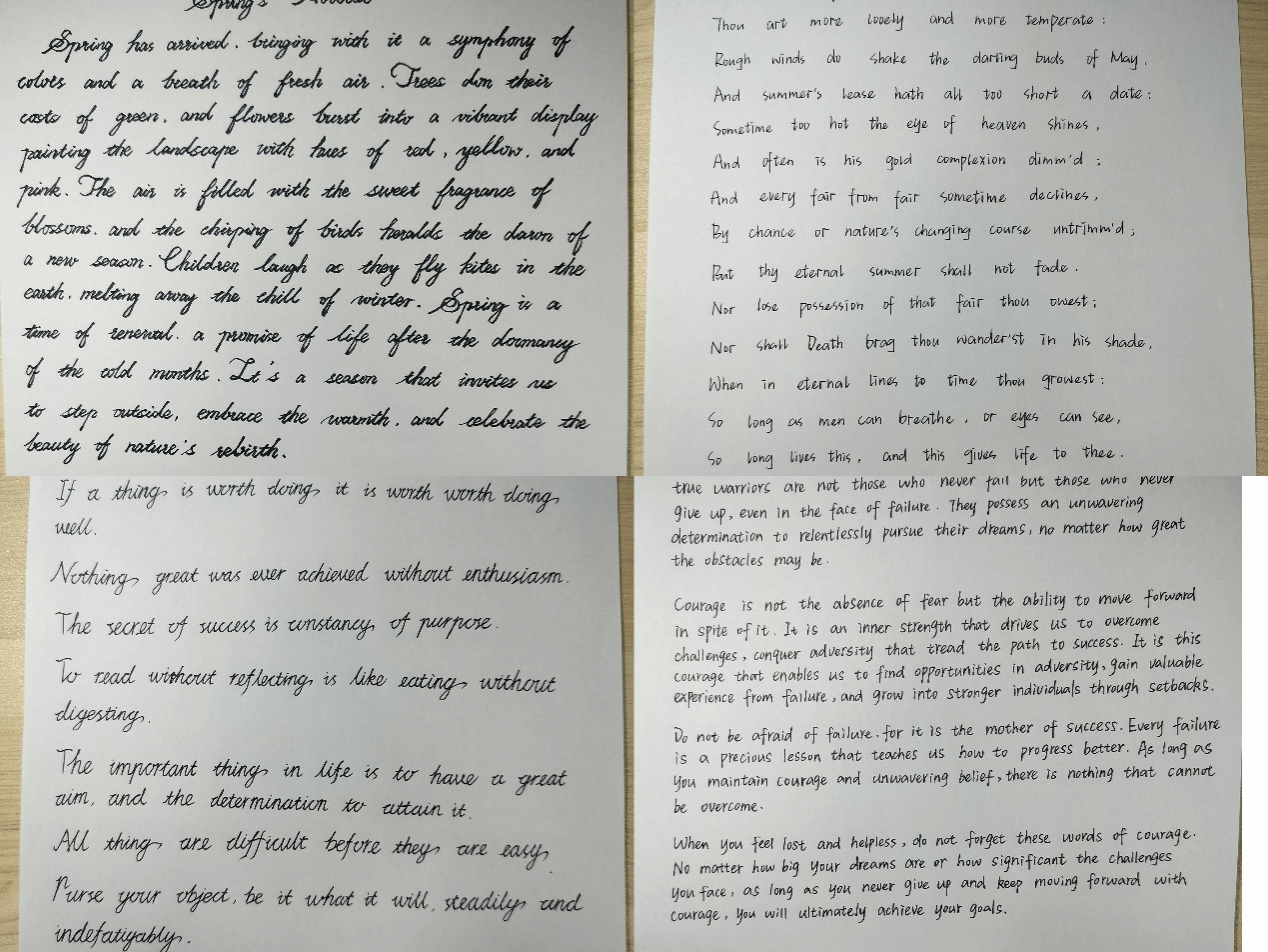 Spring's
Spring has arrived. bringing with it a symphony of
colors and a breath of fresh air. Trees don their
coats of green. and flowers burst into a vibrant display
painting the landscape with hues of red, yellow. and
pink. The air is filled with the sweet fragrance of
blossoms. and the chirping of birds heralds the dawn of
a new season. Children laugh as they fly kites in the
earth. melting away the chill of winter. Spring is a
time of renewal. a promise of life after the dormancy
of the cold months. It's a season that invites us
to step outside, embrace the warmth. and celebrate the
beauty of nature's rebirth.
Thou art more lovely and more temperate:
Rough winds do shake the darling buds of May,
And summer's lease hath all too short a date:
Sometime too hot the eye of heaven shines,
And often is his gold complexion dimm'd;
And every fair from fair sometime declines,
By chance or nature's changing course untrimm'd;
But thy eternal summer shall not fade.
Nor lose possession of that fair thou owest;
Nor shall Death brag thou wander'st in his shade,
When in eternal lines to time thou growest:
So long as men can breathe, or eyes can see,
So long lives this, and this gives life to thee.
If a thing is worth doing it is worth worth doing
well.
Nothing great was ever achieved without enthusiasm.
The secret of success is constancy of purpose.
To read without reflecting is like eating without
digesting.
The important thing in life is to have a great
aim, and the determination to attain it.
All thing are difficult before they are easy
Purse your object, be it what it will, steadily and
indefatigably.
true warriors are not those who never fail but those who never
give up, even in the face of failure. They possess an unwavering
determination to relentlessly pursue their dreams, no matter how great
the obstacles may be.
Courage is not the absence of fear but the ability to move forward
in spite of it. It is an inner strength that drives us to overcome
challenges, conquer adversity that tread the path to success. It is this
courage that enables us to find opportunities in adversity, gain valuable
experience from failure, and grow into stronger individuals through setbacks.
Do not be afraid of failure. for it is the mother of success. Every failure
is a precious lesson that teaches us how to progress better. As long as
you maintain courage and unwavering belief, there is nothing that cannot
be overcome.
When you feel lost and helpless, do not forget these words of courage.
No matter how big your dreams are or how significant the challenges
you face, as long as you never give up and keep moving forward with
courage, you will ultimately achieve your goals.